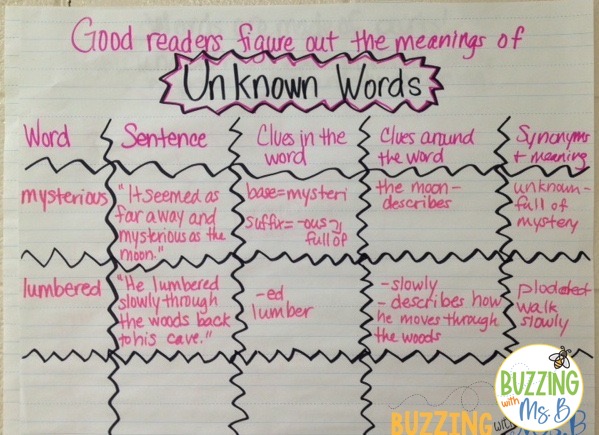 Good readers figure out the meanings of
Unknown Words
Word
Sentence
Clues in the
word
Clues around
the word
Synonyms
+ meaning
mysterious
"It seemed as
far away and
mysterious as the
moon."
base=mysteri
suffix= -ous
full of
the moon-
describes
unknown-
full of
mystery
lumbered
"He lumbered
slowly through
the woods back
to his cave."
-ed
lumber
-slowly
- describes how
he moves through
the woods
plodded
walk
slowly
BUZZING
with
Ms. B
BUZZING with Ms. B